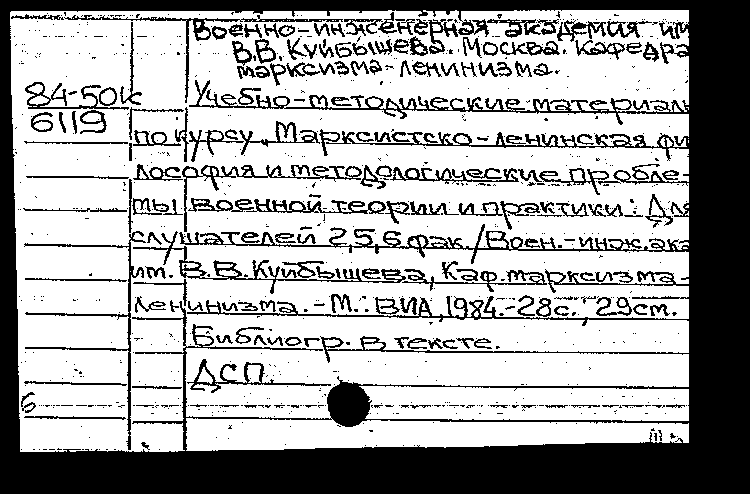 Военно-инженерная академия им
В.В. Куйбышева. Москва. Кафедра
марксизма-ленинизма.
84-50к Учебно-методические материал
6119
по курсу „Марксистско-ленинская фи
лософия и методологические пробле-
мы военной теории и практики: Для
слушателей 2,5,6 фак. / Воен.-инж. ака
им. В.В. Куйбышева, Каф. марксизма-
ленинизма. - М.: ВИА, 1984.-28с.; 29см.
Библиогр. в тексте.
ДСП.
6